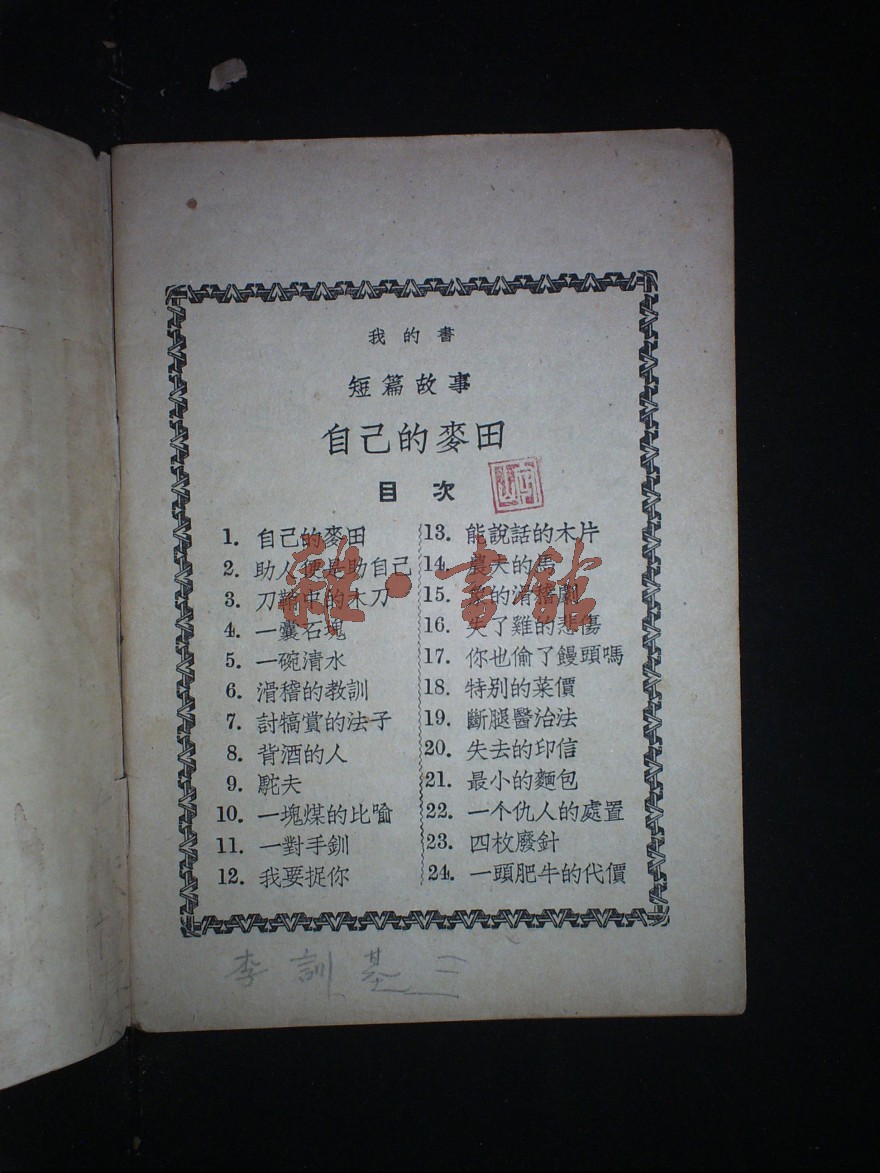 我的書
短篇故事
自己的麥田
目次
1. 自己的麥田
2. 助人便是助自己
3. 刀鞘中的木刀
4. 一囊石塊
5. 一碗清水
6. 滑稽的教訓
7. 討犒賞的法子
8. 背酒的人
9. 駝夫
10. 一塊煤的比喻
11. 一對手釧
12. 我要捉你
13. 能說話的木片
14. 農夫的馬
15. 的滑稽劇
16. 失了雞的悲傷
17. 你也偷了饅頭嗎
18. 特別的菜價
19. 斷腿醫治法
20. 失去的印信
21. 最小的麵包
22. 一个仇人的處置
23. 四枚廢針
24. 一頭肥牛的代價
李訓基
雜·書館